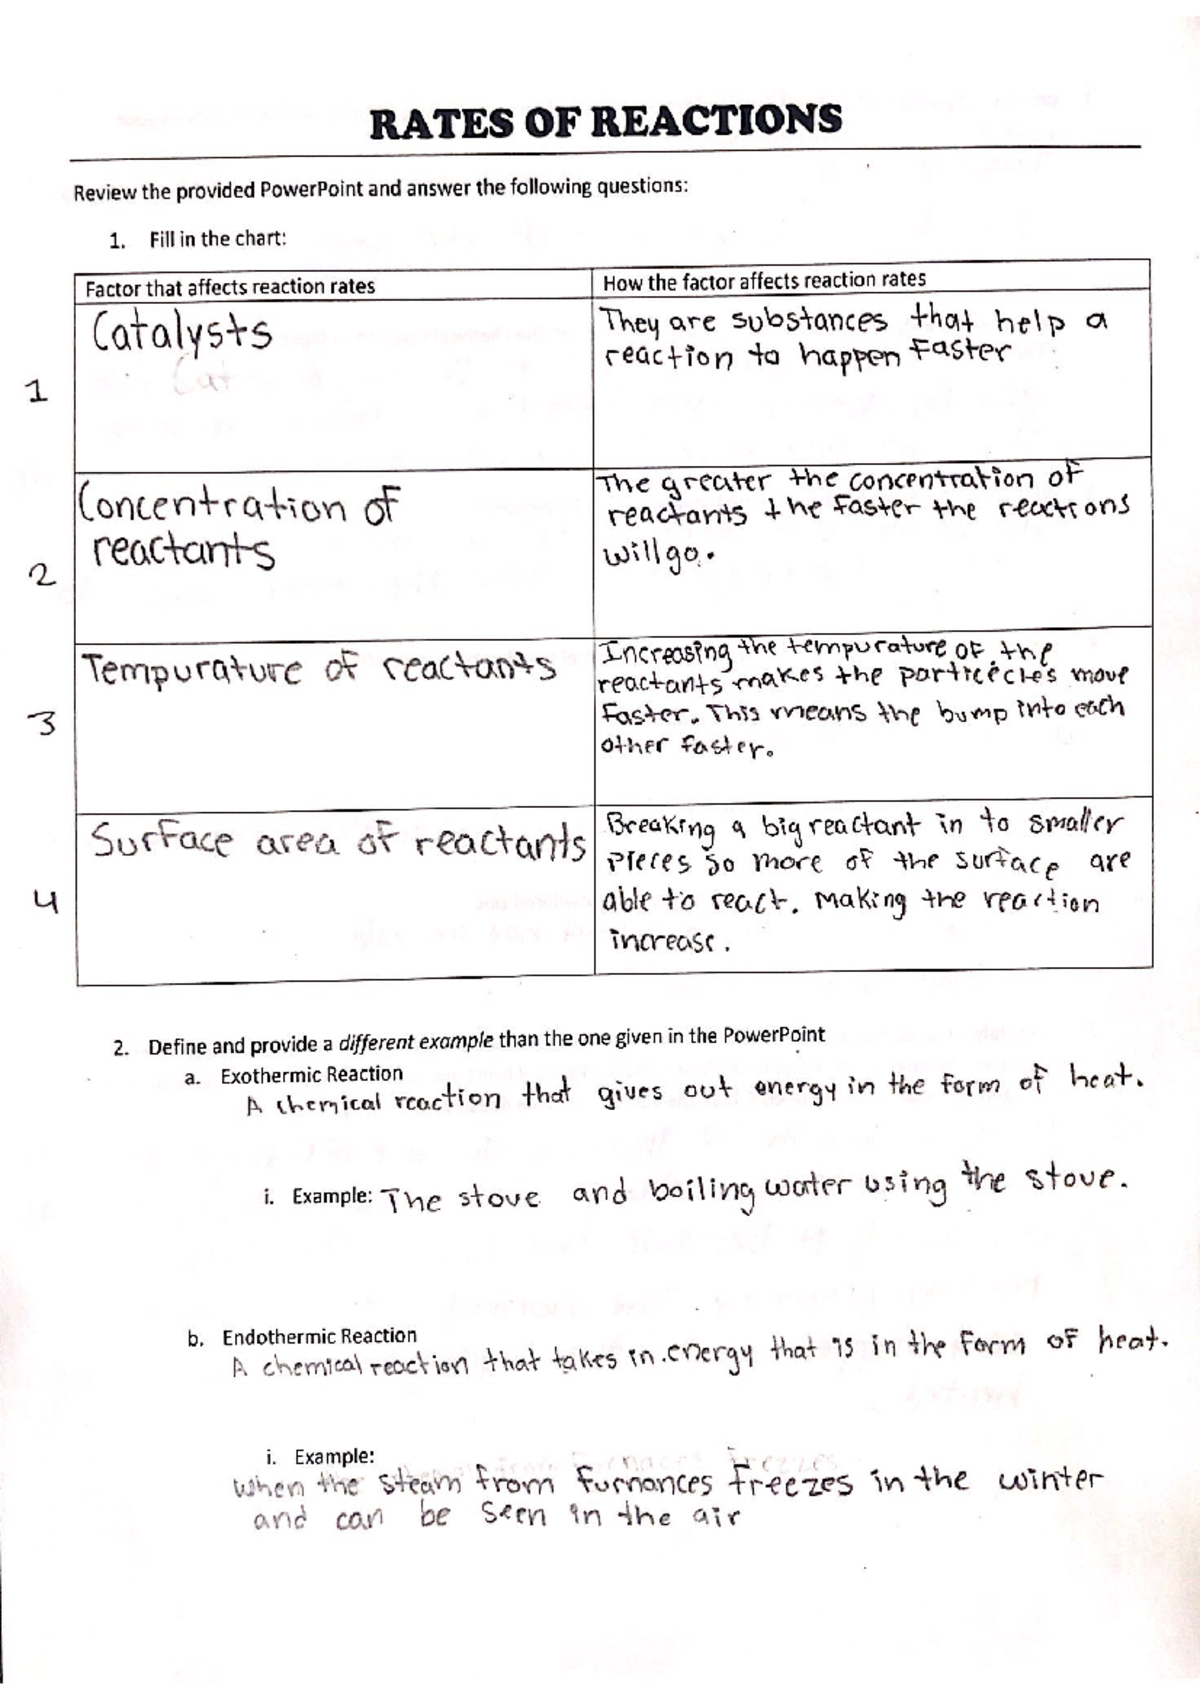 RATES OF REACTIONS
Review the provided PowerPoint and answer the following questions:
1. Fill in the chart:
Factor that affects reaction rates
How the factor affects reaction rates
1
Catalysts
Cat
They are substances that help a
reaction to happen Faster
2
Concentration of
reactants
The greater the concentration of
reactants the faster the reactions
will go.
3
Tempurature of reactants
Increasing the tempurature of the
reactants makes the particecles move
Faster. This means the bump into each
other faster.
4
Surface area of reactants
Breaking a big reactant in to smaller
pieces so more of the surface are
able to react. Making the reaction
increase.
2. Define and provide a different example than the one given in the PowerPoint
a. Exothermic Reaction
A chemical reaction that gives out energy in the form of heat.
i. Example: The stove and boiling water using the stove.
b. Endothermic Reaction
A chemical reaction that takes in energy that is in the form of heat.
i. Example:
when the steam from furnances freezes in the winter
and can be seen in the air